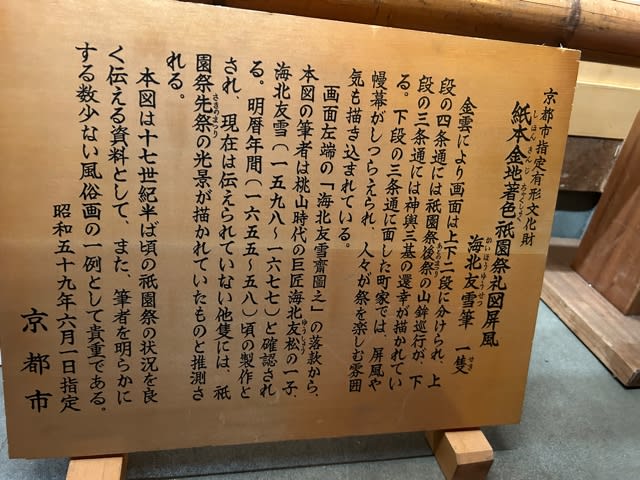 京都市指定有形文化財
紙本金地著色祇園祭礼図屏風
しほんきんじちゃくしょく
海北友雪筆　一隻
かいほうゆうせつ　せき
金雲により画面は上下二段に分けられ、上
段の四条通には祇園祭後祭の山鉾巡行が、下
あとまつり
段の三条通には神輿三基の還幸が描かれてい
る。下段の三条通に面した町家では、屏風や
幔幕がしつらえられ、人々が祭を楽しむ雰囲
気も描き込まれている。
画面左端の「海北友雪齋圖之」の落款から、
本図の筆者は桃山時代の巨匠海北友松の一子、
ゆうしょう
海北友雪(一五九八~一六七七)と確認され
る。明暦年間(一六五五~五八)頃の製作と
され、現在は伝えられていない他隻には、祇
園祭先祭の光景が描かれていたものと推測さ
さきのまつり
れる。
本図は十七世紀半ば頃の祇園祭の状況を良
く伝える資料として、また、筆者を明らかに
する数少ない風俗画の一例として貴重である。
昭和五十九年六月一日指定
京都市